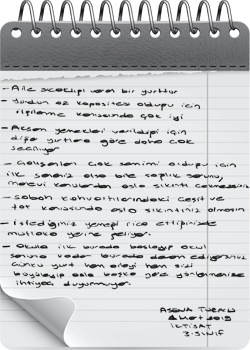 - Aile sıcaklığı veren bir yurttur
- Yurdun az kapasiteli olduğu için
ilgilenme konusunda çok iyi
- Akşam yemekleri verildiği için
diğer yurtlara göre daha çok
seçiliyor
- Çalışanları çok samimi olduğu için
ilk seneniz olsa bile sağlık sorunu,
manevi konulardan asla sıkıntı çekmezsiniz
- Sabah kahvaltılarındaki çeşit ve
tat konusunda asla sıkıntınız olmasın
- İstediğiniz yemeği rica ettiğinizde
mutlaka yerine geliyor.
- Okula ilk burada başlayıp okul
sonuna kadar burada devam ediyorsunuz
Çünkü yurt hem aileyi hem sizi
büyüleyip asla başka yere yönlenmenize
ihtiyaç duyurmuyor.
2019
İKTİSAT
3. SINIF